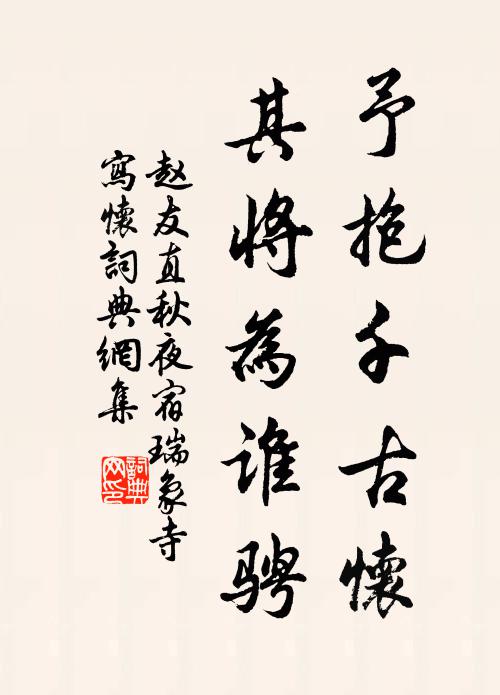 予抱千古懷
其將為誰骋
赵友直秋夜宿瑞象寺
寫懷詞典網集
詞典網印